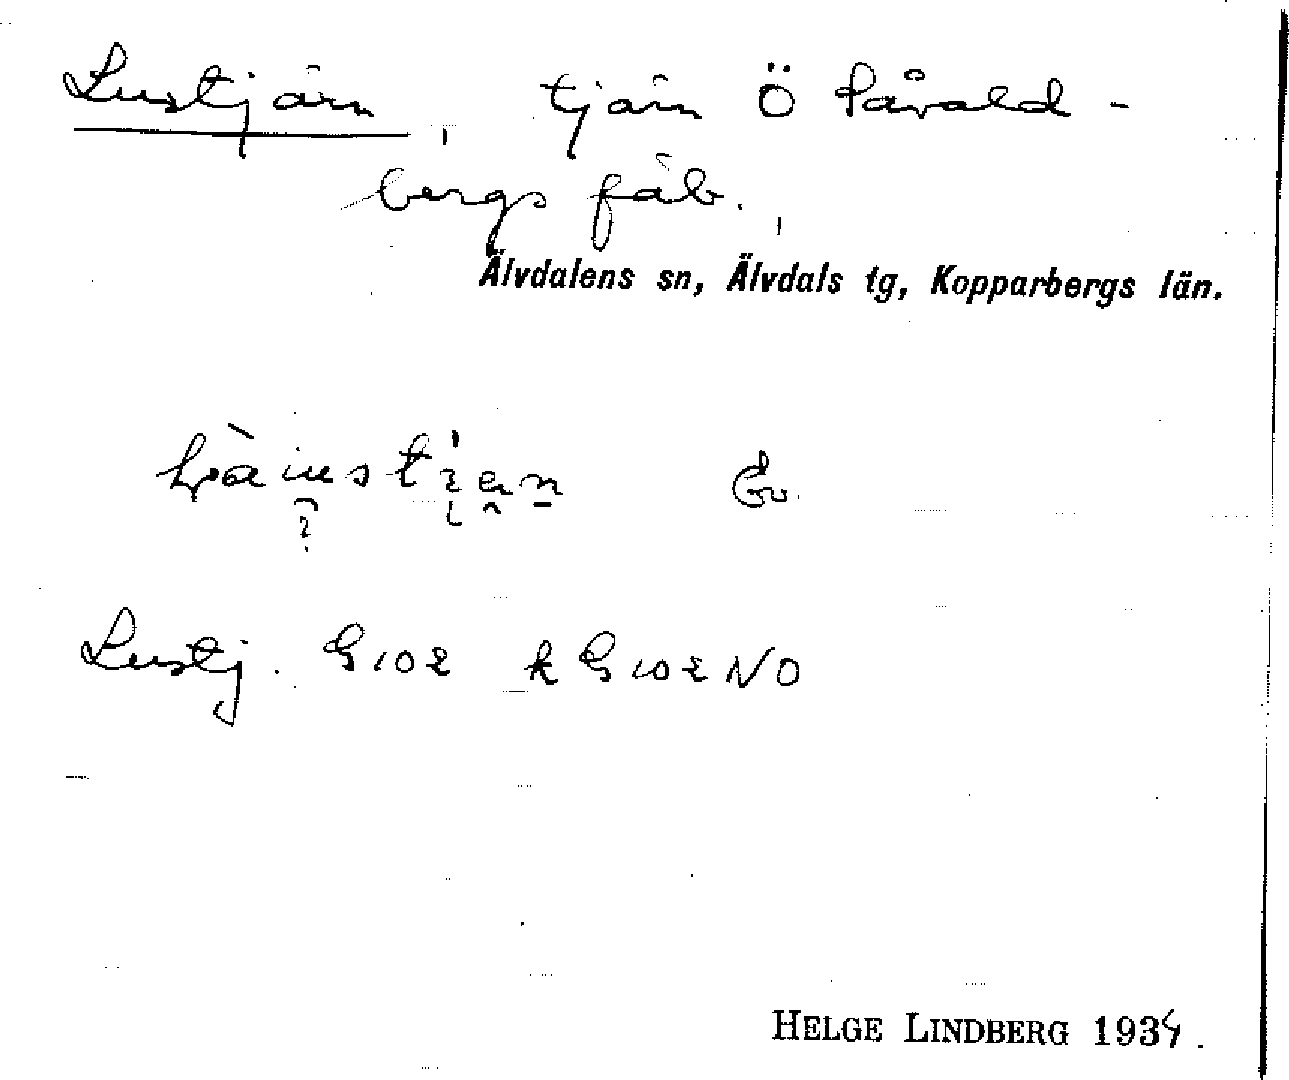 Lustjärn, tjärn Ö Påvald-
bergs fäb.,
Älvdalens sn, Älvdals tg, Kopparbergs län.
Ev.
Lustj. G102 k G102 NO
HELGE LINDBERG 1934.